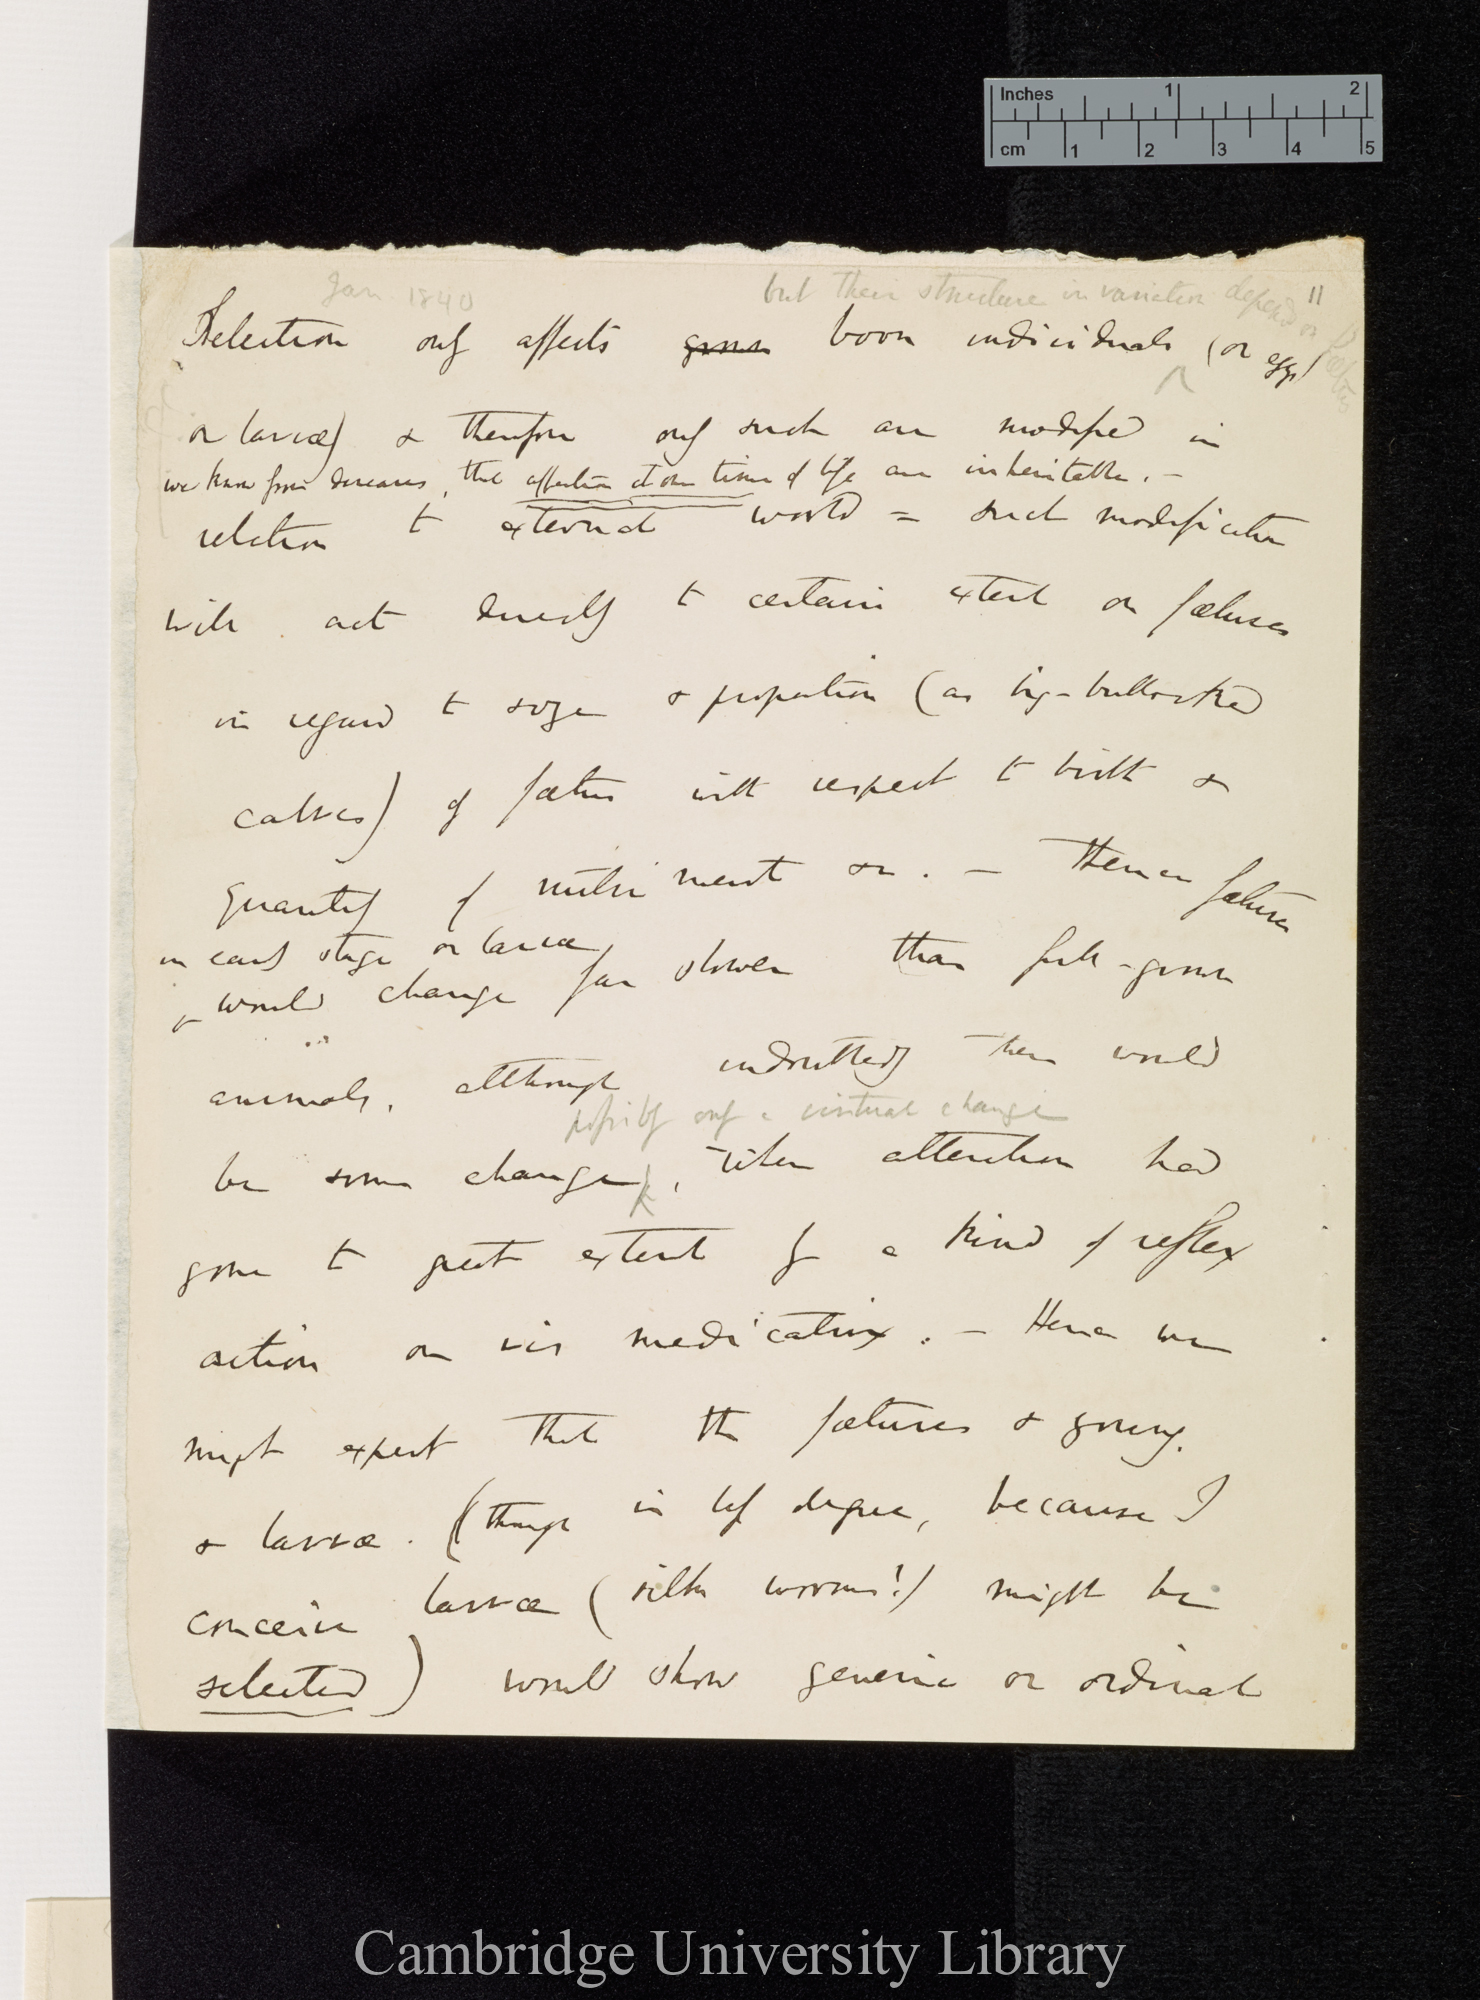 Inches 1 2
cm 1 2 3 4 5
Jan. 1840
but their structure in variation depend on foetus
11
Selection only affects grown born individuals (or eggs)
or larvæ) & therefore only such are modified in
we know from diseases, that affection at one time of life are inheritable. —
relation to external world = such modification
will act directly to certain extent on fœtuses
in regard to size & proportion (as big-buttocked
calves) of fœtus with respect to birth &
quantity of nutriment &c. — Hence fœtuses
in early stage or larvæ
& would change far slower than full-grown
animals, although undoubtedly there would
possibly only a virtual change
be some change, when alteration had
gone to great extent by a kind of reflex
action or vis medicatrix. — Hence we
might expect that the fœtuses & young.
& larvæ. (though in less degree, because I
conceive larvæ (silk worms!) might be
selected) would show generic or ordinal
Cambridge University Library